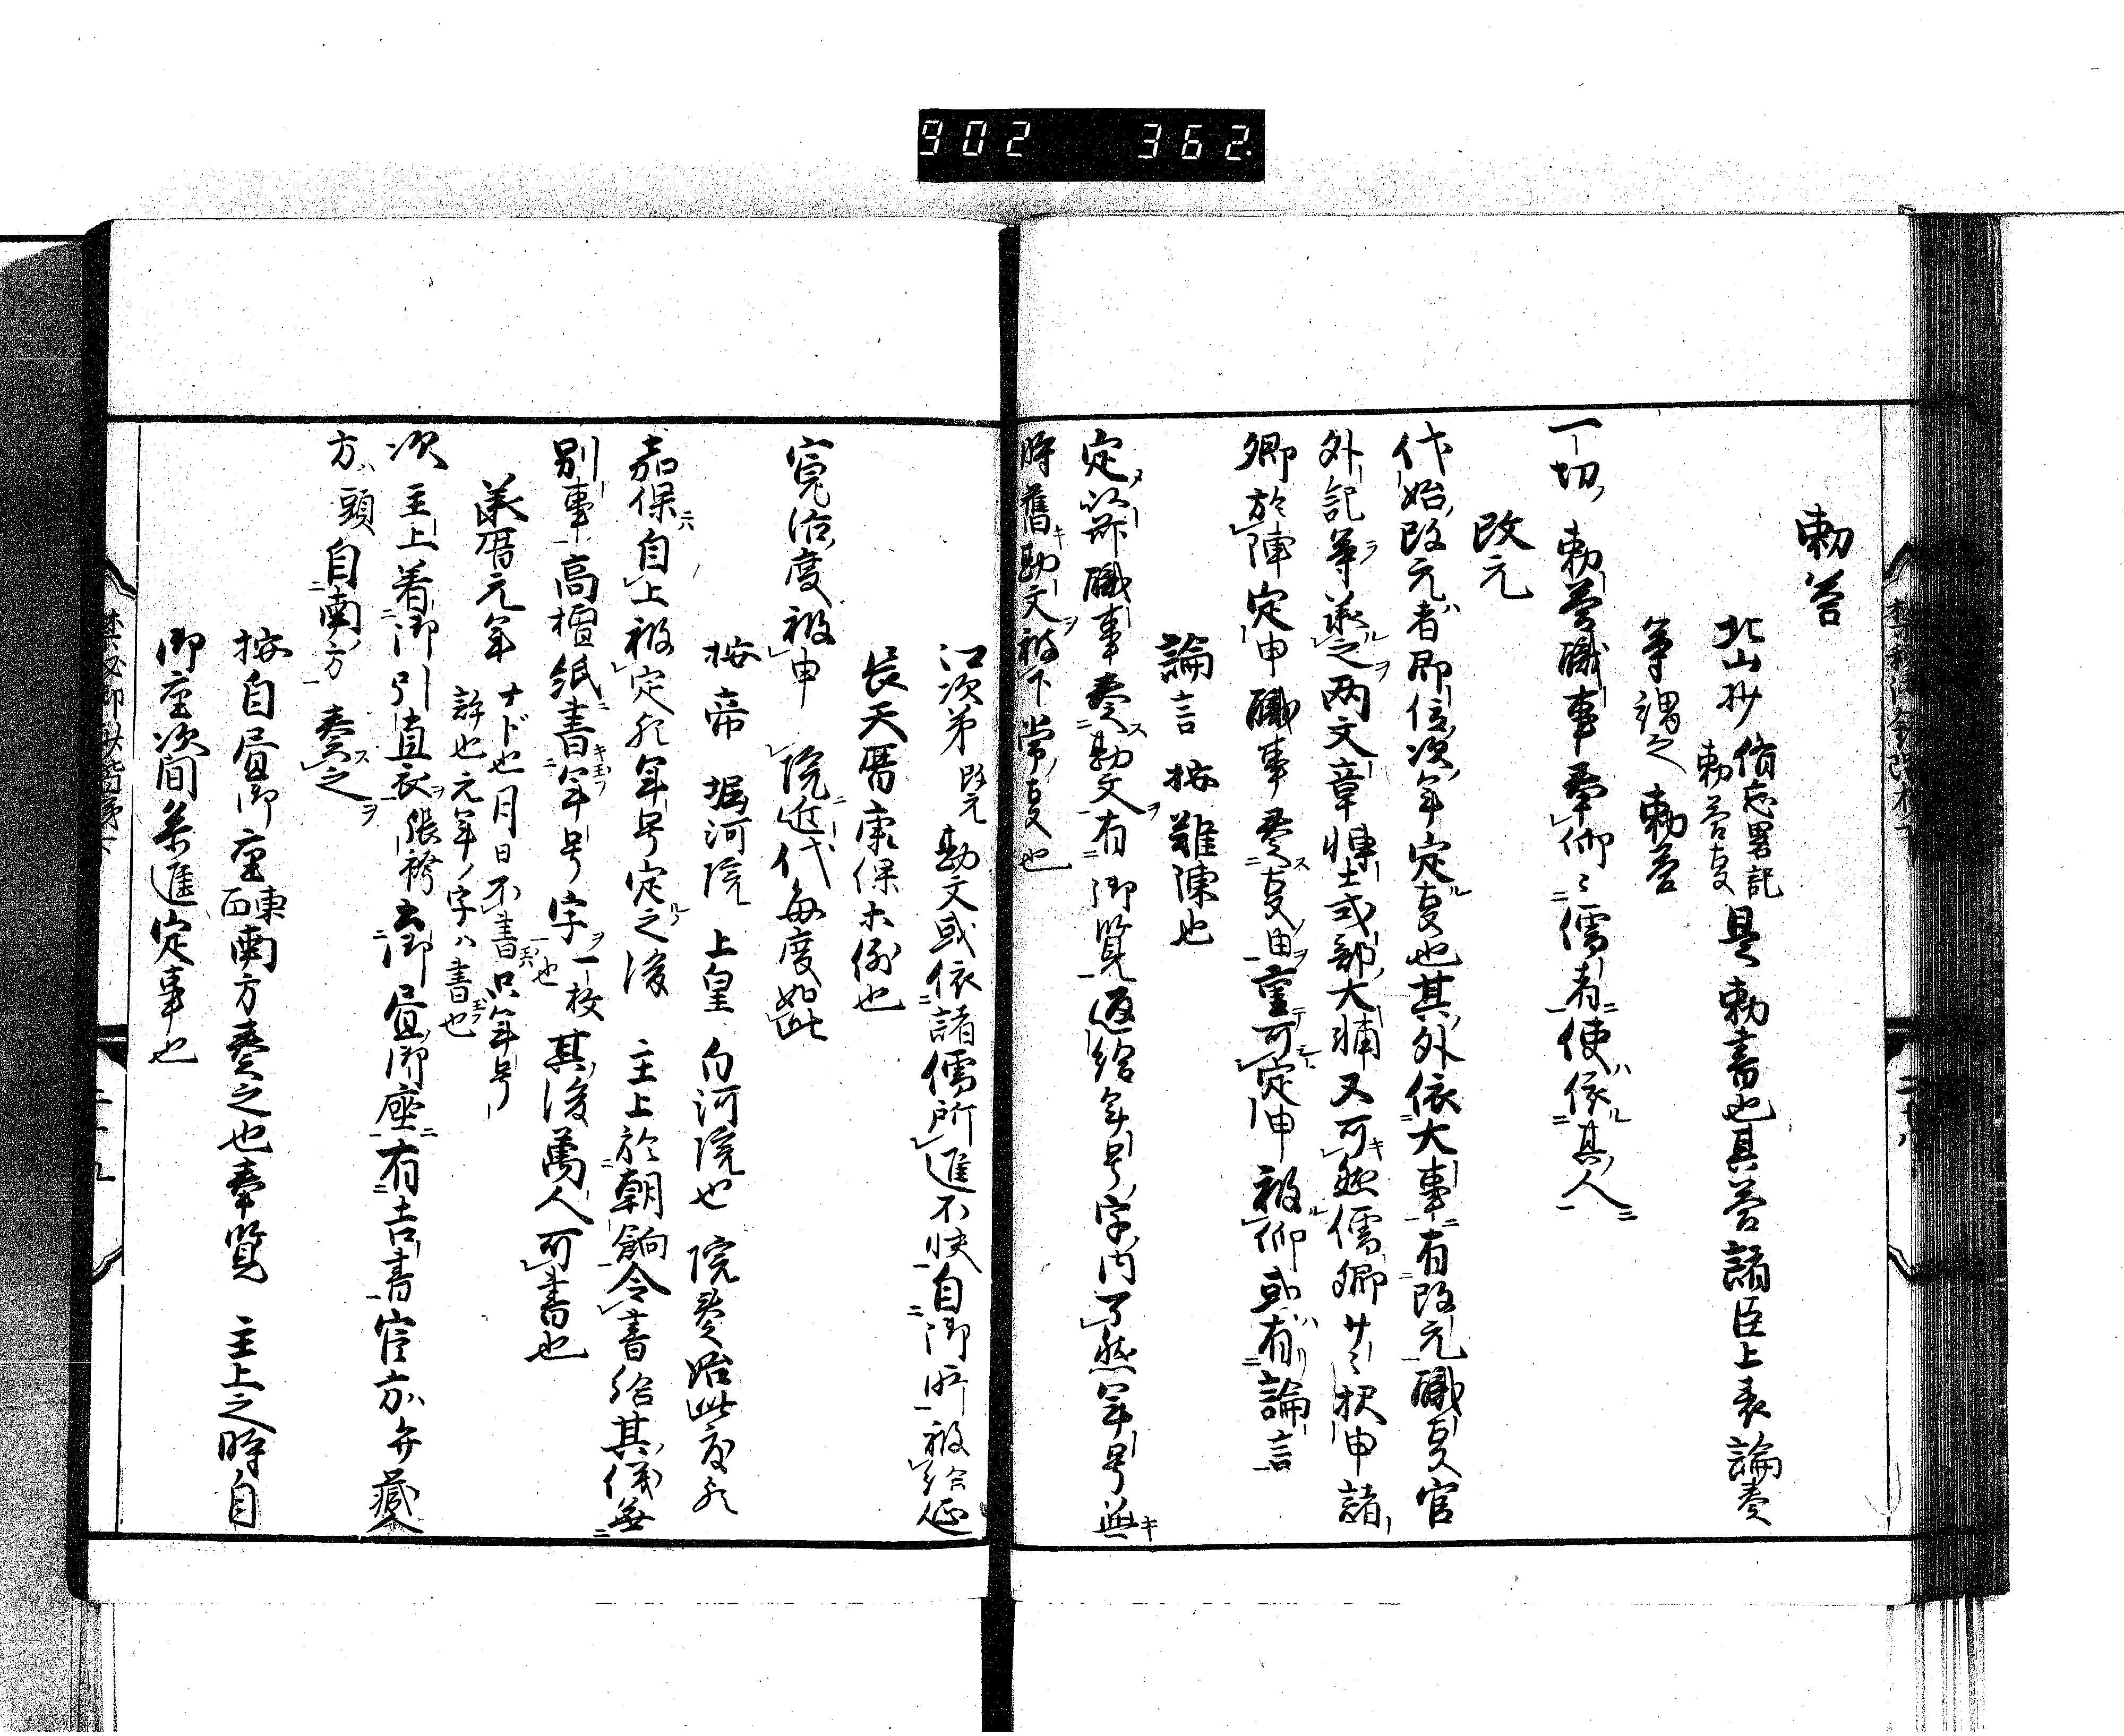 902 362
勅答
北山抄 備忘畧記 勅答叓 是勅書也其答諸臣上表論奏
等謂之勅答
一切勅答職事奉仰〻儒者使依其人
改元
代始改元者即位次年定叓也其外依大事有改元職叓官
外記等承之両文章博士式部大輔又可然儒卿廿〻択申諸
卿於陣定申職事奏叓由重可定申被仰或有論言
論言 按難陳也
定以前職事奏勘文有御覧返給年号字内了然年号無
時舊勘文被下常叓也
江次第 改元 勘文或依諸儒所進不快自御所被給
長天暦康保木例也
寛治度被申院近代毎度如此
按帝 堀河院 上皇 白河院也 院奏始此度
嘉保自上被定年号定之後 主上於朝餉令書給其儀無
別事高檀紙書年号字一枚其後萬人可書也
承暦元年ナド也月日不書只年号
許也元年ノ字ハ書也
次 主上着御引直衣張袴出御昼御座有吉書官方弁蔵
方頭自南方奏之
按自昼御座 東面 南方奏之也奉覧 主上之時自
御座次間参進定事也